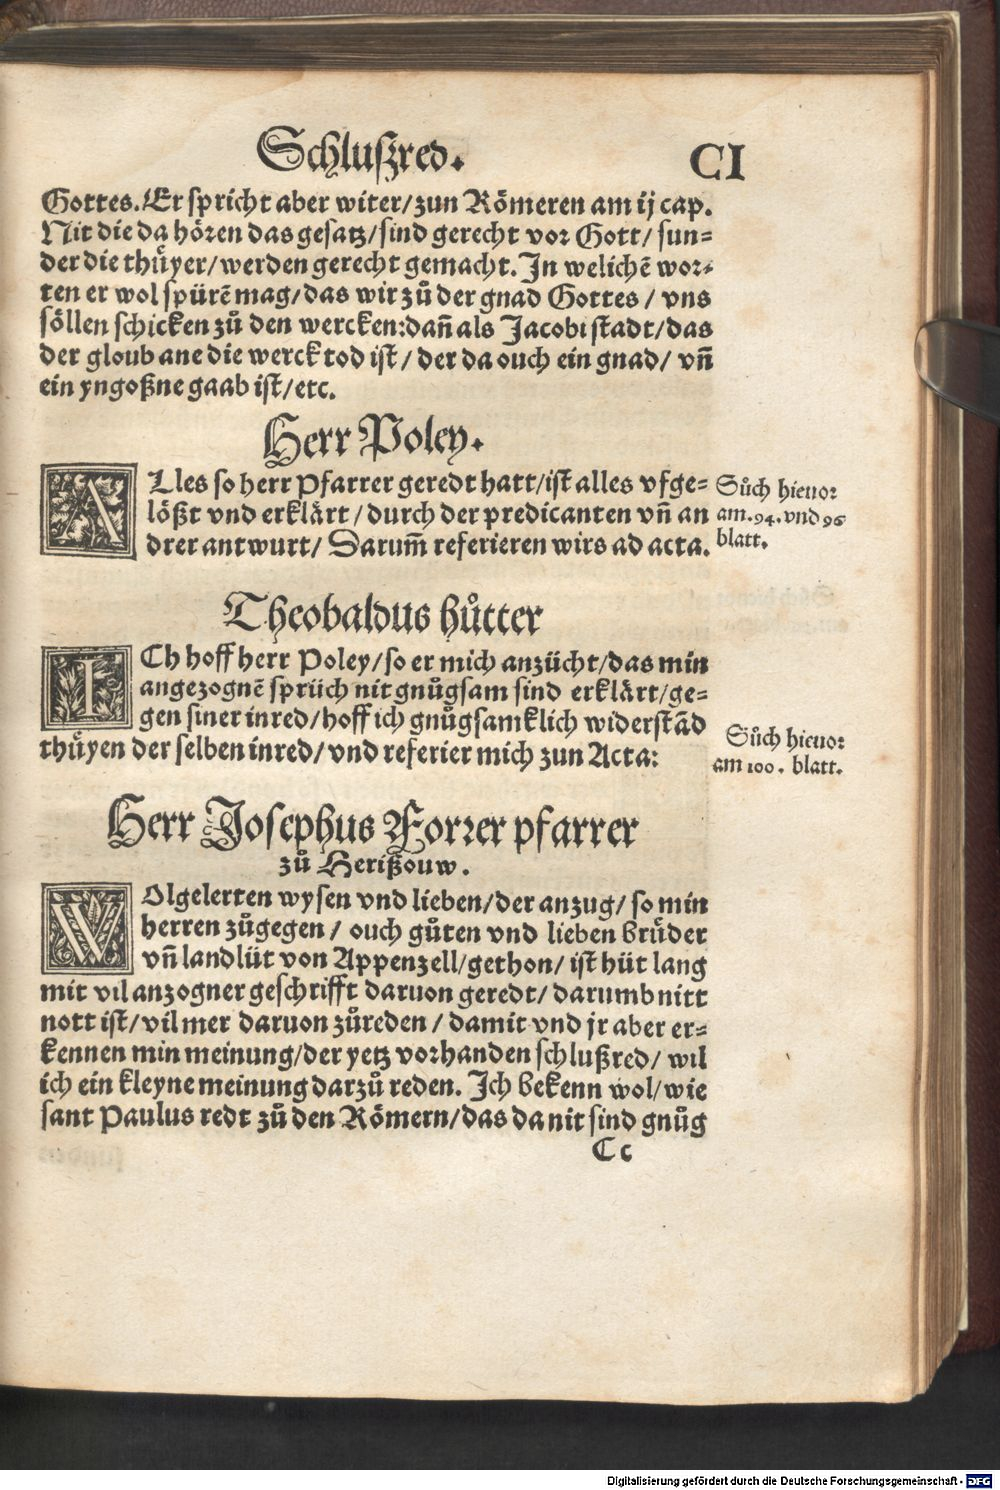 Schlußred. CI
Gottes. Er spricht aber witer/ zun Römeren am ij cap.
Nit die da hören das gesatz/ sind gerecht vor Gott/ sun-
der die thuͤyer/ werden gerecht gemacht. In welichē wor-
ten er wol spürē mag/ das wir zů der gnad Gottes / vns
söllen schicken zů den wercken: dañ als Jacobi stadt/ das
der gloub ane die werck tod ist/ der da ouch ein gnad/ vñ
ein yngoßne gaab ist/ etc.
Herr Poley.
ALles so herr Pfarrer geredt hatt/ ist alles vfge-
lößt vnd erklärt / durch der predicanten vñ an
drer antwurt/ Darum̄ referieren wirs ad acta.
Sůch hieuor
am. 94. vnd 96
blatt.
Theobaldus hůtter
ICh hoff herr Poley/ so er mich anzücht/ das min
angezognē sprüch nit gnůgsam sind erklärt/ ge-
gen siner inred/ hoff ich gnůgsamklich widerstād
thuͤyen der selben inred/ vnd referier mich zun Acta:
Sůch hieuor
am 100. blatt.
Herr Josephus Forrer pfarrer
zů Herißouw.
WOlgelerten wysen vnd lieben/ der anzug/ so min
herren zůgegen / ouch gůten vnd lieben bruͤder
vñ landlüt von Appenzell/ gethon/ ist hüt lang
mit vil anzogner geschrifft daruon geredt/ darumb nitt
nott ist/ vil mer daruon zůreden / damit vnd jr aber er-
kennen min meinung/ der yetz vorhanden schlußred/ wil
ich ein kleyne meinung darzů reden. Ich bekenn wol/ wie
sant Paulus redt zů den Römern/ das da nit sind gnůg
Cc
Digitalisierung gefördert durch die Deutsche Forschungsgemeinschaft - DFG